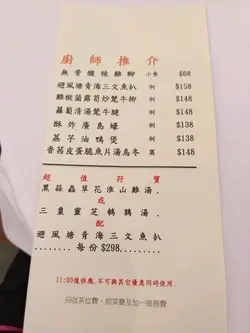 廚師推介
無骨酸辣雞腳 小食 $68
避風塘青海三文魚扒 例 $158
雞樅菌露筍炒鴛牛柳 例 $148
蘿蔔清湯鴛牛腱 例 $148
酥炸廣島蠔 例 $138
荔芋油鴨煲 例 $138
香茜皮蛋脆魚片湯烏冬 窩 $148
超值孖寶
黑蒜蟲草花淮山雞湯.
或
三皇靈芝鷓鴣湯.
配
避風塘青海三文魚扒
.......每份$298.......
11:00後供應.不可與其它優惠同時使用.
另收茶位費、前菜費及加一服務費